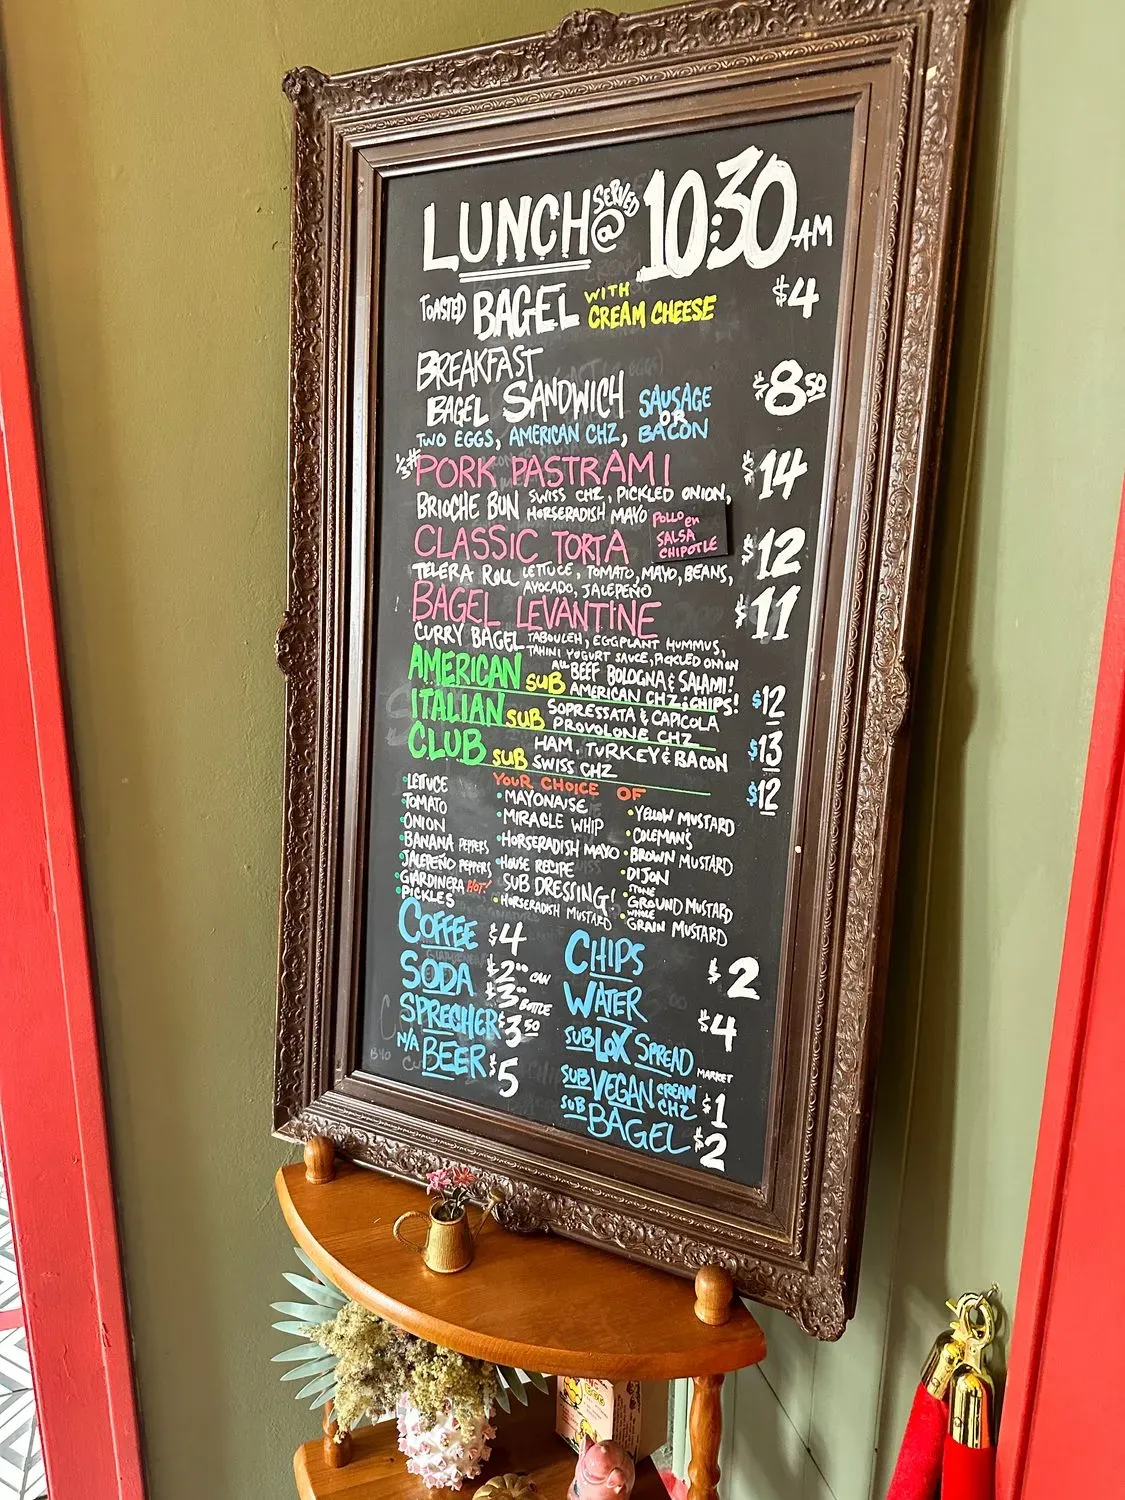 LUNCH SERVED @ 10:30 AM
TOASTED BAGEL WITH CREAM CHEESE $4
BREAKFAST
BAGEL SANDWICH SAUSAGE OR BACON $8.50
TWO EGGS, AMERICAN CHZ,
1/3# PORK PASTRAMI $14
BRIOCHE BUN SWISS CHZ, PICKLED ONION,
HORSERADISH MAYO
CLASSIC TORTA $12
POLLO en
SALSA
CHIPOTLE
TELERA ROLL LETTUCE, TOMATO, MAYO, BEANS,
AVOCADO, JALEPEÑO
BAGEL LEVANTINE $11
CURRY BAGEL TABOULEH, EGGPLANT HUMMUS,
TAHINI YOGURT SAUCE, PICKLED ONION
AMERICAN SUB ALL BEEF BOLOGNA & SALAMI!
AMERICAN CHZ & CHIPS! $12
ITALIAN SUB SOPRESSATA & CAPICOLA
PROVOLONE CHZ $13
CLUB SUB HAM, TURKEY & BACON
SWISS CHZ $12
YOUR CHOICE OF
•LETTUCE
•TOMATO
•ONION
•BANANA PEPPERS
•JALEPEÑO PEPPERS
•GIARDINERA HOT!
•PICKLES
•MAYONAISE
•MIRACLE WHIP
•HORSERADISH MAYO
•HOUSE RECIPE
SUB DRESSING!
•HORSERADISH MUSTARD
•YELLOW MUSTARD
•COLEMAN'S
•BROWN MUSTARD
•DIJON
•STONE GROUND MUSTARD
•WHOLE GRAIN MUSTARD
COFFEE $4
SODA $2.00 CAN
$3.00 BOTTLE
SPRECHER $3.50
N/A BEER $5
CHIPS $2
WATER $4
SUB LOX SPREAD MARKET
SUB VEGAN CREAM CHZ $1
SUB BAGEL $2